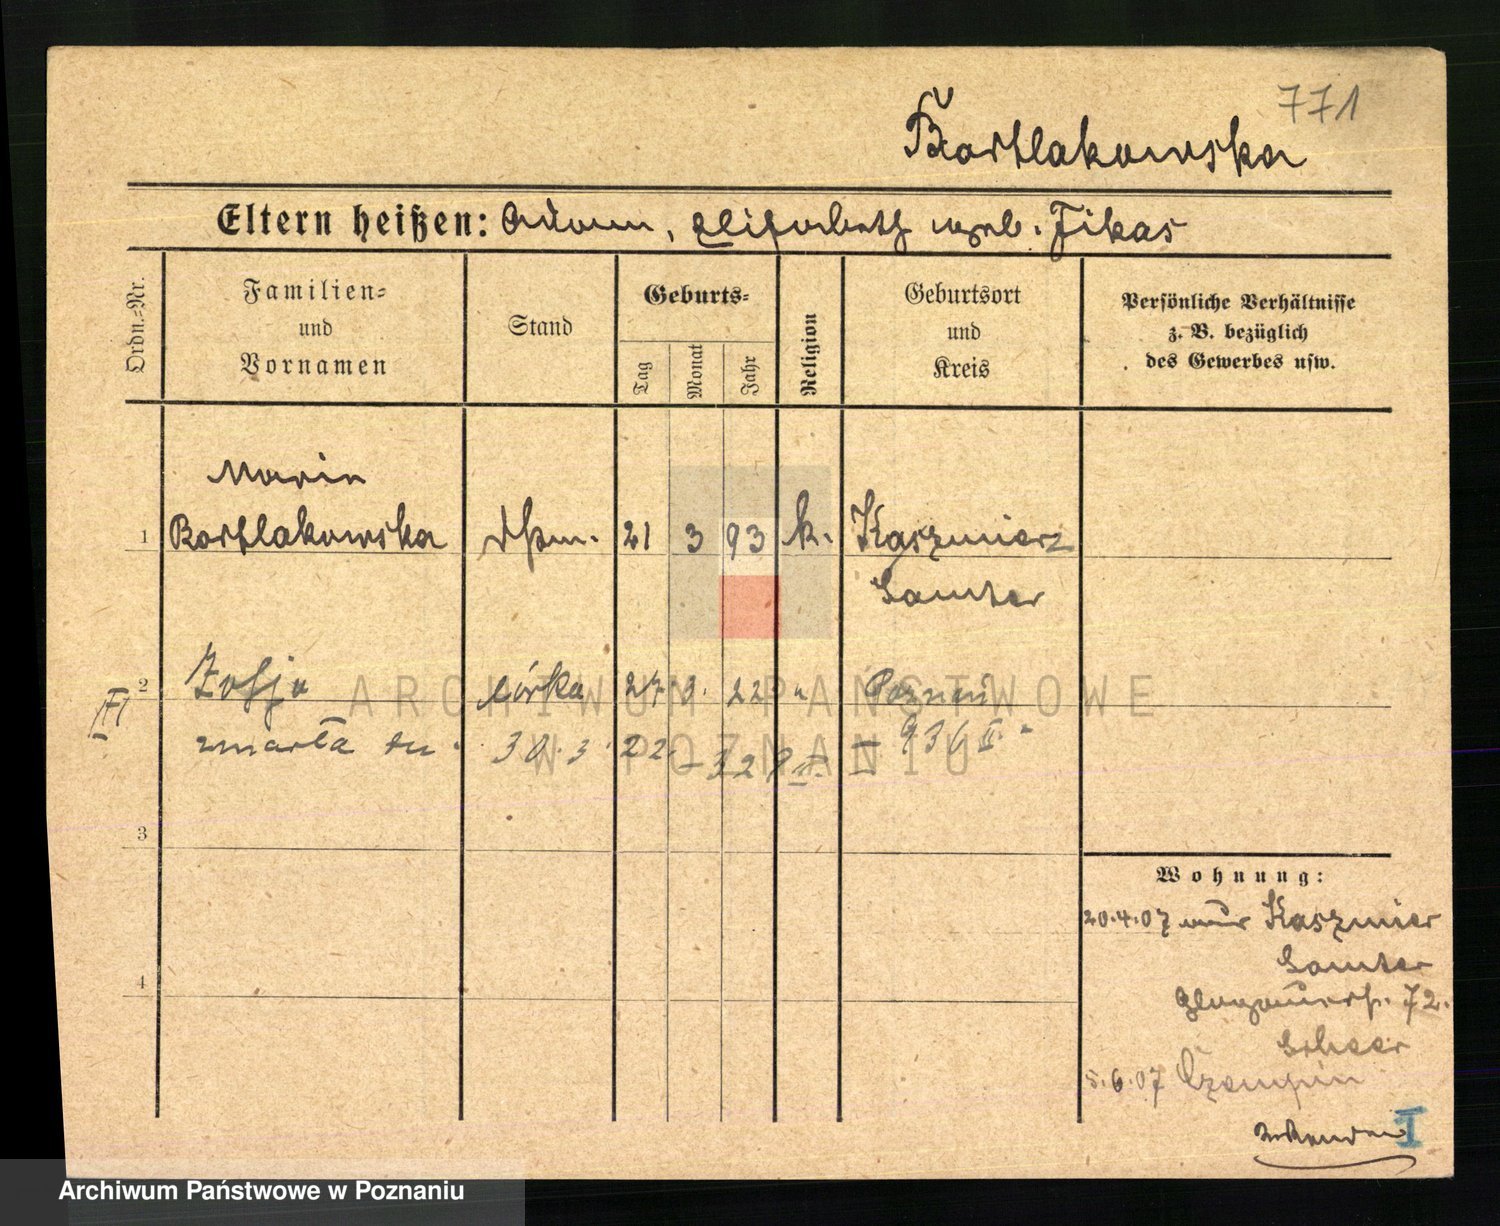 771
Bartlakowska
Eltern heißen: Adam, Elisabeth geb. Fikas
Ordn.-Nr.
Familien-
und
Vornamen
Stand
Geburts-
Tag
Monat
Jahr
Religion
Geburtsort
und
Kreis
Persönliche Verhältnisse
z. B. bezüglich
des Gewerbes usw.
Marie
1 Bartlakowska 21 3 93 k. Kaszmierz
Samter
2 Zofja córka 27 3. 22 " Poznań
zmarła dn. 30.3.22
3
4
Wohnung:
20.4.07 Kaszmier
Samter
Glogauerstr. 72.
Scheer
5.6.07 Czempin
I
ARCHIWUM PAŃSTWOWE
W POZNANIU
Archiwum Państwowe w Poznaniu